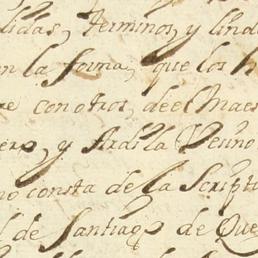 didas, terminos, y lind
en la forma, que los h
re con otros, de el Maes
ero, y Ardila Vecino
no consta de la Scriptu
d de Santiago de Que